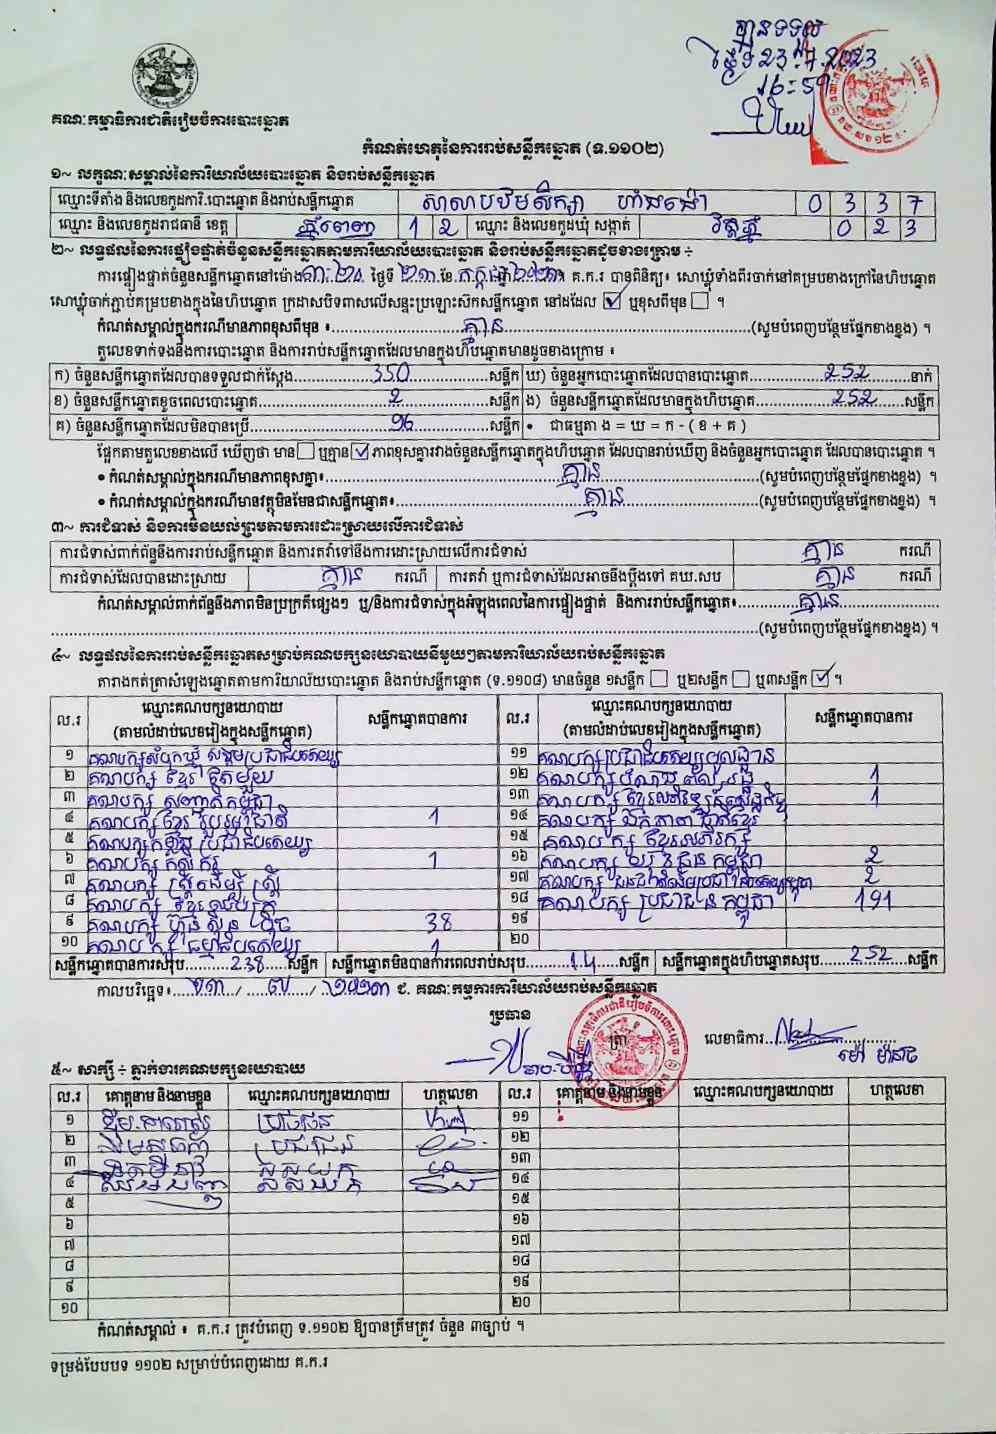 គ្មានទទួល
ថ្ងៃទី 23.7.2023
16:59
គណៈកម្មាធិការជាតិរៀបចំការបោះឆ្នោត
កំណត់ហេតុនៃការរាប់សន្លឹកឆ្នោត (ទ.១១០២)
១~ លក្ខណៈសម្គាល់នៃការិយាល័យបោះឆ្នោត និងរាប់សន្លឹកឆ្នោត
ឈ្មោះទីតាំង និងលេខកូដការិ.បោះឆ្នោត និងរាប់សន្លឹកឆ្នោត សាលាបឋមសិក្សា 0 3 3 7
ឈ្មោះ និងលេខកូដរាជធានី ខេត្ត ភ្នំពេញ 1 2 ឈ្មោះ និងលេខកូដឃុំ សង្កាត់ 0 2 3
២~ លទ្ធផលនៃការផ្ទៀងផ្ទាត់ចំនួនសន្លឹកឆ្នោតតាមការិយាល័យបោះឆ្នោត និងរាប់សន្លឹកឆ្នោតដូចខាងក្រោម ÷
ការផ្ទៀងផ្ទាត់ចំនួនសន្លឹកឆ្នោតនៅម៉ោង ៣:២០ ថ្ងៃទី ២៣ ខែ កក្កដា ឆ្នាំ ២០២៣ គ.ក.រ បានពិនិត្យ៖ សោឃ្លុំទាំងពីរចាក់នៅគម្របខាងក្រៅនៃហិបឆ្នោត
សោឃ្លុំចាក់ភ្ជាប់គម្របខាងក្នុងនៃហិបឆ្នោត ក្រដាសបិទពាសលើសន្ទះប្រឡោះស៊កសន្លឹកឆ្នោត នៅដដែល ☑ ឬខុសពីមុន ☐ ។
កំណត់សម្គាល់ក្នុងករណីមានភាពខុសពីមុន ៖ គ្មាន (សូមបំពេញបន្ថែមផ្នែកខាងខ្នង) ។
តួលេខទាក់ទងនឹងការបោះឆ្នោត និងការរាប់សន្លឹកឆ្នោតដែលមានក្នុងហិបឆ្នោតមានដូចខាងក្រោម ៖
ក) ចំនួនសន្លឹកឆ្នោតដែលបានទទួលជាក់ស្តែង 350 សន្លឹក ឃ) ចំនួនអ្នកបោះឆ្នោតដែលបានបោះឆ្នោត 252 នាក់
ខ) ចំនួនសន្លឹកឆ្នោតខូចពេលបោះឆ្នោត 2 សន្លឹក ង) ចំនួនសន្លឹកឆ្នោតដែលមានក្នុងហិបឆ្នោត 252 សន្លឹក
គ) ចំនួនសន្លឹកឆ្នោតដែលមិនបានប្រើ 96 សន្លឹក • ជាធម្មតា ង = ឃ = ក - ( ខ + គ )
ផ្អែកតាមតួលេខខាងលើ ឃើញថា មាន ☐ ឬគ្មាន ☑ ភាពខុសគ្នារវាងចំនួនសន្លឹកឆ្នោតក្នុងហិបឆ្នោត ដែលបានរាប់ឃើញ និងចំនួនអ្នកបោះឆ្នោត ដែលបានបោះឆ្នោត ។
• កំណត់សម្គាល់ក្នុងករណីមានភាពខុសគ្នា៖ គ្មាន (សូមបំពេញបន្ថែមផ្នែកខាងខ្នង) ។
• កំណត់សម្គាល់ក្នុងករណីមានវត្ថុមិនមែនជាសន្លឹកឆ្នោត៖ គ្មាន (សូមបំពេញបន្ថែមផ្នែកខាងខ្នង) ។
៣~ ការជំទាស់ និងការមិនយល់ព្រមតាមការដោះស្រាយលើការជំទាស់
ការជំទាស់ពាក់ព័ន្ធនឹងការរាប់សន្លឹកឆ្នោត និងការតវ៉ាទៅនឹងការដោះស្រាយលើការជំទាស់ គ្មាន ករណី
ការជំទាស់ដែលបានដោះស្រាយ គ្មាន ករណី ការតវ៉ា ឬការជំទាស់ដែលអាចនឹងប្តឹងទៅ គឃ.សប គ្មាន ករណី
កំណត់សម្គាល់ពាក់ព័ន្ធនឹងភាពមិនប្រក្រតីផ្សេងៗ ឬ/និងការជំទាស់ក្នុងអំឡុងពេលនៃការផ្ទៀងផ្ទាត់ និងការរាប់សន្លឹកឆ្នោត៖ គ្មាន
(សូមបំពេញបន្ថែមផ្នែកខាងខ្នង) ។
៤~ លទ្ធផលនៃការរាប់សន្លឹកឆ្នោតសម្រាប់គណបក្សនយោបាយនីមួយៗតាមការិយាល័យរាប់សន្លឹកឆ្នោត
តារាងកត់ត្រាសំឡេងឆ្នោតតាមការិយាល័យបោះឆ្នោត និងរាប់សន្លឹកឆ្នោត (ទ.១១០៨) មានចំនួន ១សន្លឹក ☐ ឬ២សន្លឹក ☐ ឬ៣សន្លឹក ☑ ។
ល.រ ឈ្មោះគណបក្សនយោបាយ (តាមលំដាប់លេខរៀងក្នុងសន្លឹកឆ្នោត) សន្លឹកឆ្នោតបានការ ល.រ ឈ្មោះគណបក្សនយោបាយ (តាមលំដាប់លេខរៀងក្នុងសន្លឹកឆ្នោត) សន្លឹកឆ្នោតបានការ
១ គណបក្សសំបុកឃ្មុំ សង្គមប្រជាធិបតេយ្យ ១១ គណបក្សប្រជាធិបតេយ្យមូលដ្ឋាន
២ គណបក្ស ខ្មែរ តែមួយ ១២ គណបក្ស 1
៣ គណបក្ស សញ្ជាតិកម្ពុជា ១៣ គណបក្ស 1
៤ គណបក្ស ខ្មែរ រួបរួមជាតិ 1 ១៤ គណបក្ស ឯកភាពជាតិខ្មែរ
៥ គណបក្ស ប្រជាធិបតេយ្យ ១៥ គណបក្ស ខ្មែរសេរីភក្តី
៦ គណបក្ស កសិករ 1 ១៦ គណបក្ស យុវជន កម្ពុជា 2
៧ គណបក្ស ស្ត្រីដើម្បី ស្ត្រី ១៧ គណបក្ស 2
៨ គណបក្ស ខ្មែរ ១៨ គណបក្ស ប្រជាជន កម្ពុជា 191
៩ គណបក្ស ហ៊្វុនស៊ិនប៉ិច 38 ១៩
១០ គណបក្ស ធម្មាធិបតេយ្យ 1 ២០
សន្លឹកឆ្នោតបានការសរុប 238 សន្លឹក សន្លឹកឆ្នោតមិនបានការពេលរាប់សរុប 14 សន្លឹក សន្លឹកឆ្នោតក្នុងហិបឆ្នោតសរុប 252 សន្លឹក
កាលបរិច្ឆេទ៖ ២៣ / ៧ / ២០២៣ ជ. គណៈកម្មការការិយាល័យរាប់សន្លឹកឆ្នោត
ប្រធាន
ត្រា លេខាធិការ
៥~ សាក្សី ÷ ភ្នាក់ងារគណបក្សនយោបាយ
ល.រ គោត្តនាម និងនាមខ្លួន ឈ្មោះគណបក្សនយោបាយ ហត្ថលេខា ល.រ គោត្តនាម និងនាមខ្លួន ឈ្មោះគណបក្សនយោបាយ ហត្ថលេខា
១ ប្រជាជន ១១
២ ប្រជាជន ១២
៣ ១៣
៤ ១៤
៥ ១៥
៦ ១៦
៧ ១៧
៨ ១៨
៩ ១៩
១០ ២០
កំណត់សម្គាល់ ៖ គ.ក.រ ត្រូវបំពេញ ទ.១១០២ ឱ្យបានត្រឹមត្រូវ ចំនួន ៣ច្បាប់ ។
ទម្រង់បែបបទ ១១០២ សម្រាប់បំពេញដោយ គ.ក.រ